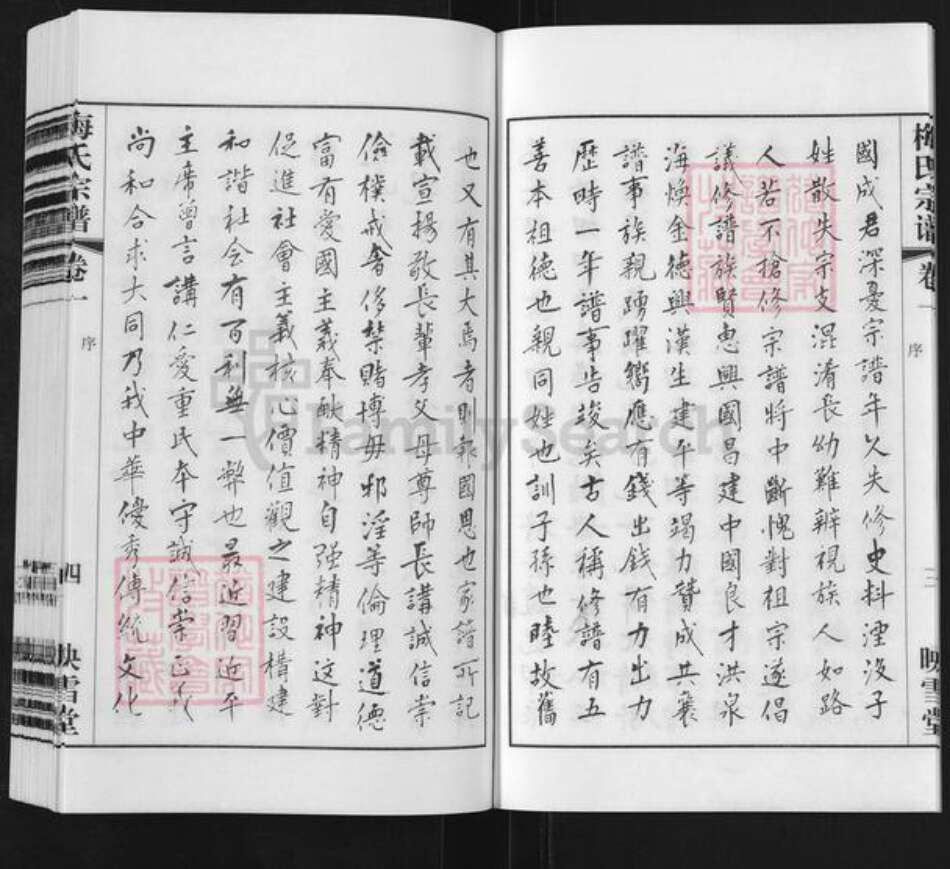 梅氏宗譜 卷一 序 三 映雪堂
國成君深憂宗譜年久失修史料湮沒子
姓散失宗支混淆長幼難辨視族人如路
人若不搶修宗譜將中斷愧對祖宗遂倡
議修譜族賢惠興國昌建中國良才洪泉
海煥金德興漢生建平等竭力贊成共襄
譜事族親踴躍響應有錢出錢有力出力
歷時一年譜事告竣矣古人稱修譜有五
善本祖德也親同姓也訓子孫也睦故舊
也又有其大焉者則報國恩也家譜所記
載宣揚敬長輩孝父母尊師長講誠信崇
儉樸戒奢侈禁賭博毋邪淫等倫理道德
富有愛國主義奉獻精神自强精神这對
促進社會主義核心價值觀之建設構建
和諧社会有百利無一弊也最近習近平
主席曾言講仁愛重民本守誠信崇正義
尚和合求大同乃我中華優秀傳統文化
梅氏宗譜 卷一 序 四 映雪堂
FamilySearch